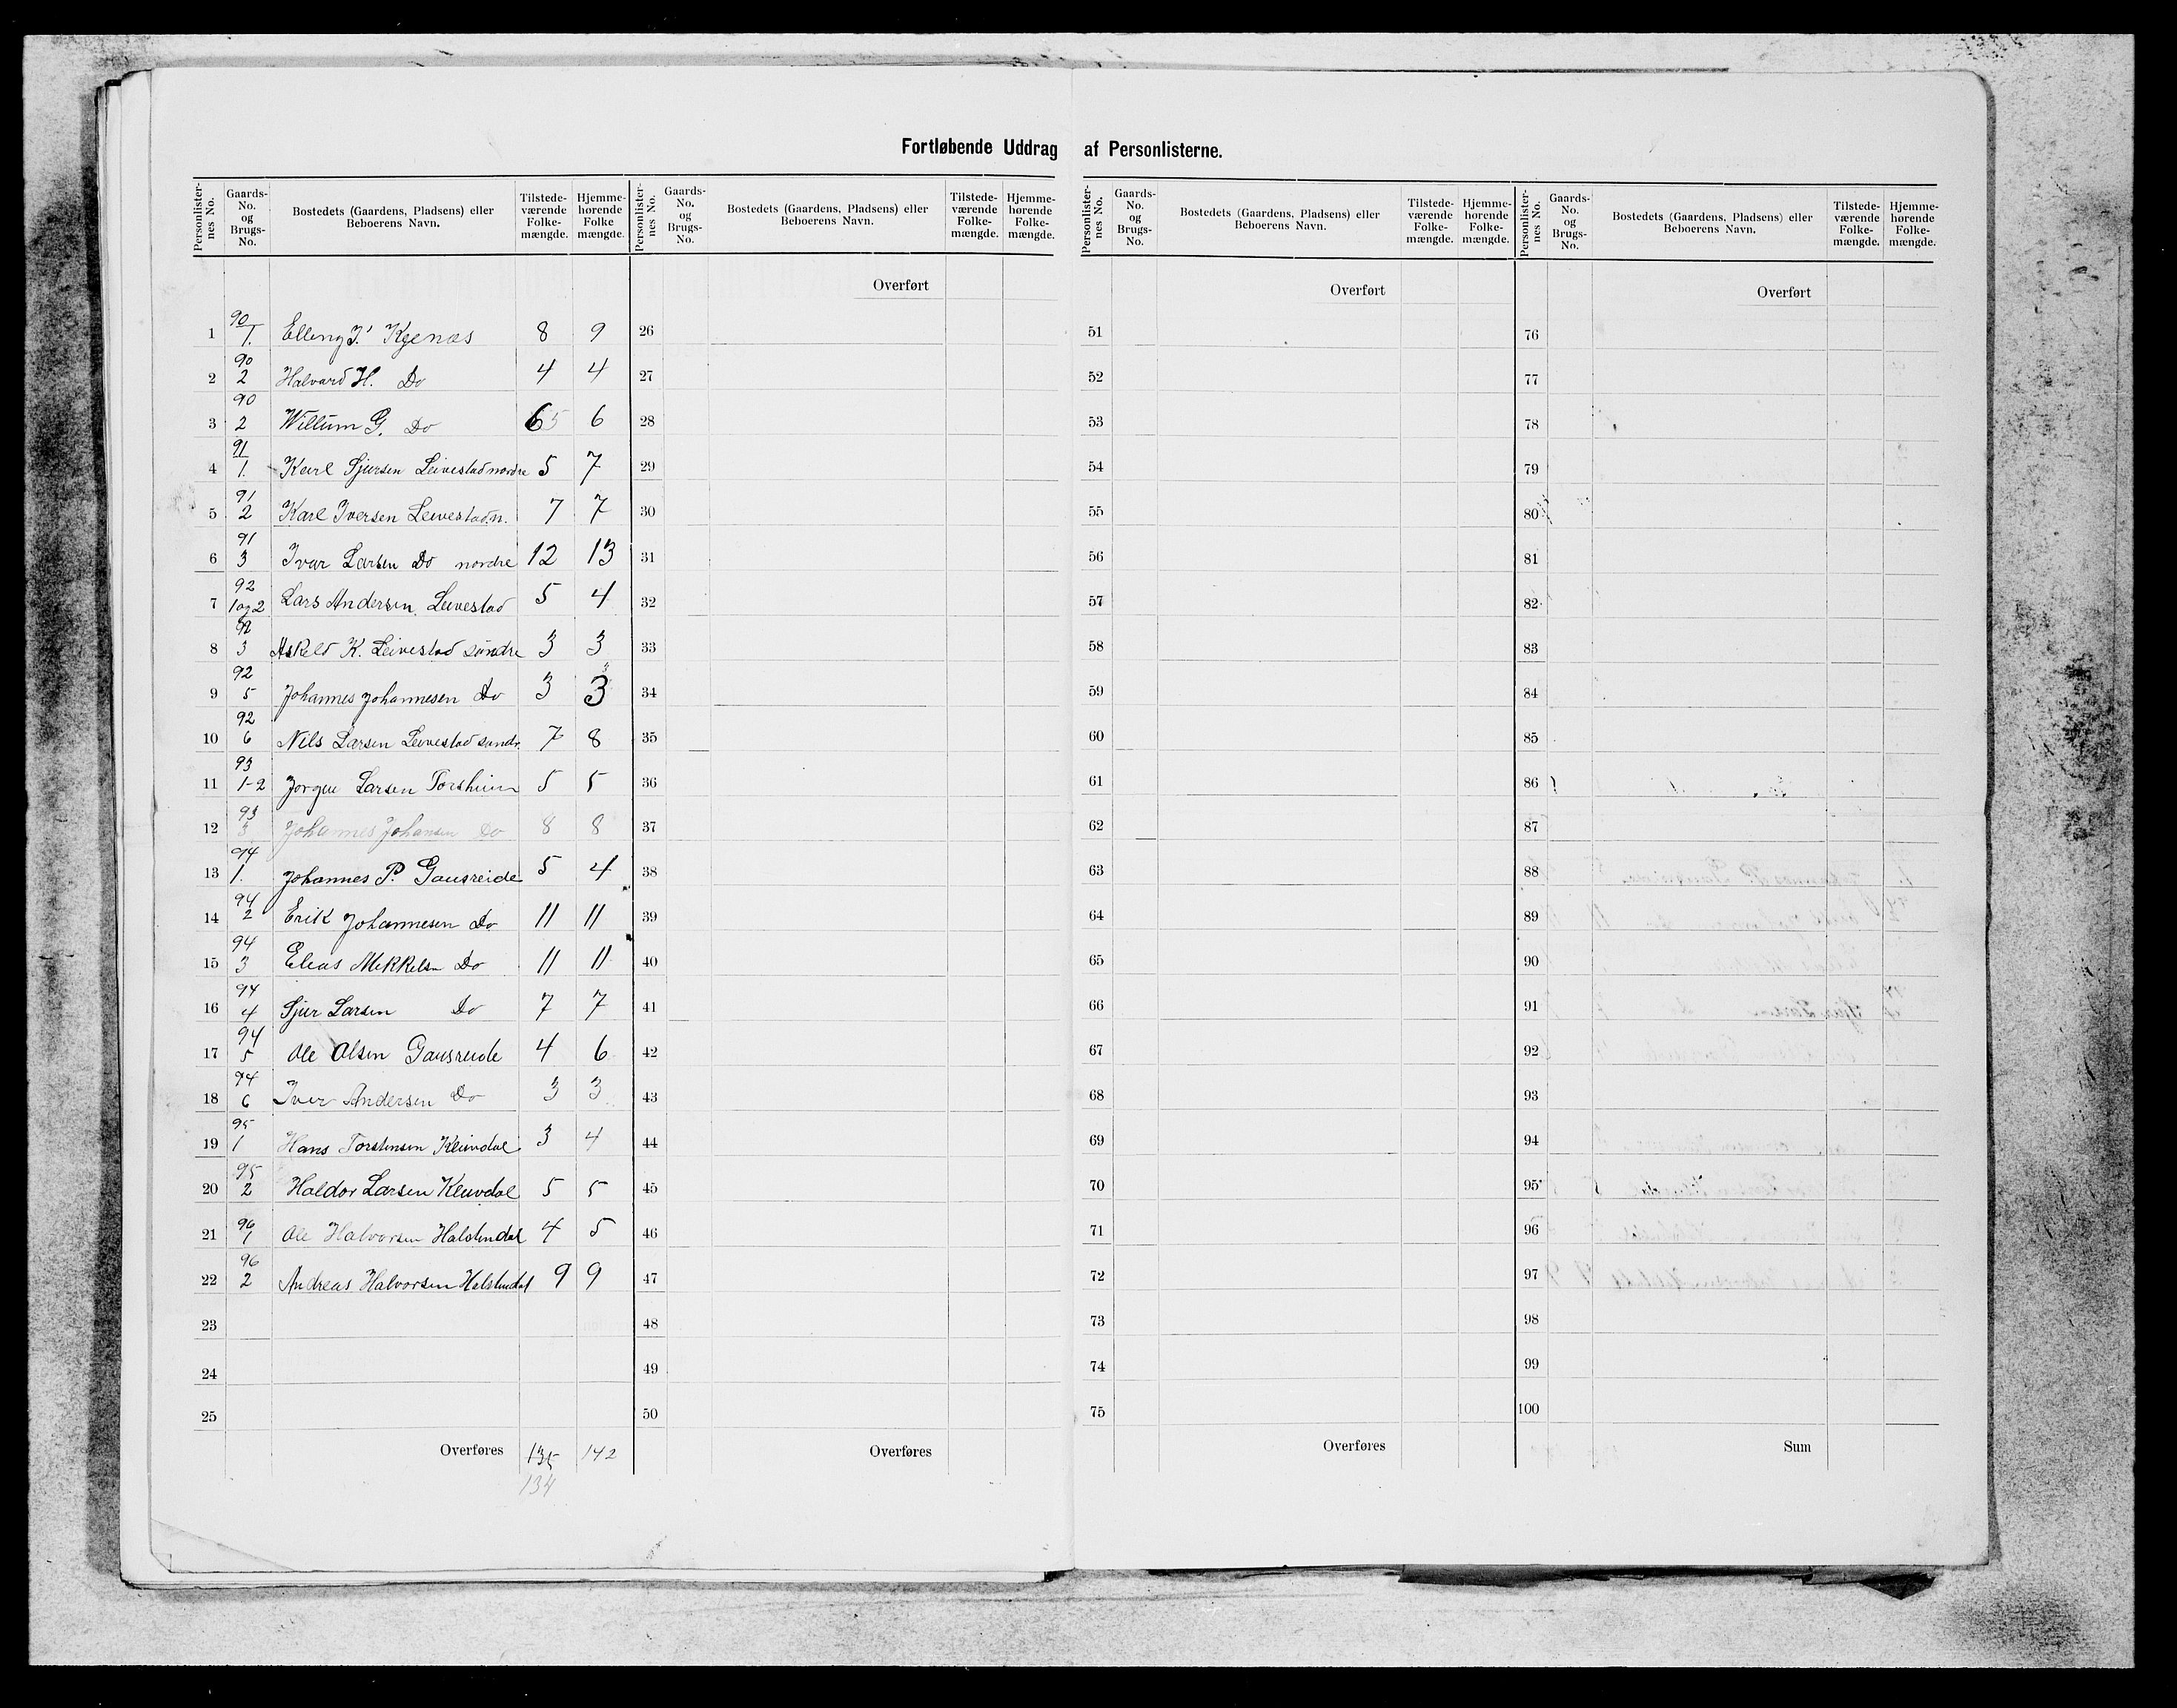 Fortløbende Uddrag af Personlisterne.
Personlister-nes No. Gaards-No. og Brugs-No. Bostedets (Gaardens, Pladsens) eller Beboerens Navn. Tilstede-værende Folke-mængde. Hjemme-hørende Folke mængde. Personlister-nes No. Gaards-No. og Brugs-No. Bostedets (Gaardens, Pladsens) eller Beboerens Navn. Tilstede-værende Folke-mængde. Hjemme-hørende Folke-mængde. Personlister-nes No. Gaards-No. og Brugs-No. Bostedets (Gaardens, Pladsens) eller Beboerens Navn. Tilstede-værende Folke-mængde. Hjemme-hørende Folke-mængde. Personlister-nes No. Gaards-No. og Brugs-No. Bostedets (Gaardens, Pladsens) eller Beboerens Navn. Tilstede-værende Folke-mængde. Hjemme-hørende Folke-mængde.
Overført Overført Overført
1 90/1. Elling J. Kjenæs 8 9 26 51 76
2 90/2 Halvard H. Do 4 4 27 52 77
3 90/2 Willum G. Do 6 5 6 28 53 78
4 91/1. Karl Sjursen Leivestad nordre 5 7 29 54 79
5 91/2 Karl Iversen Leivestad n. 7 7 30 55 80
6 91/3 Ivar Larsen Do nordre 12 13 31 56 81
7 92/1 og 2 Lars Andersen Leivestad 5 4 32 57 82
8 92/3 Askeld K. Leivestad søndre 3 3 33 58 83
9 92/5 Johannes Johannesen Do 3 3 34 59 84
10 92/6 Nils Larsen Leivestad søndr. 7 8 35 60 85
11 93/1-2 Jørgen Larsen Torsheim 5 5 36 61 86
12 93/3 Johannes Johansen Do 8 8 37 62 87
13 94/1. Johannes P. Gausreide 5 4 38 63 88
14 94/2 Erik Johannesen Do 11 11 39 64 89
15 94/3 Elias Mikkelsen Do 11 11 40 65 90
16 94/4 Sjur Larsen Do 7 7 41 66 91
17 94/5 Ole Olsen Gausreide 4 6 42 67 92
18 94/6 Iver Andersen Do 3 3 43 68 93
19 95/1 Hans Torstensen Kleivdal 3 4 44 69 94
20 95/2 Haldor Larsen Kleivdal 5 5 45 70 95
21 96/1 Ole Halvorsen Halstendal 4 5 46 71 96
22 96/2 Andreas Halvorsen Halstendal 9 9 47 72 97
23 48 73 98
24 49 74 99
25 50 75 100
Overføres 135 142 Overføres Overføres Sum
134